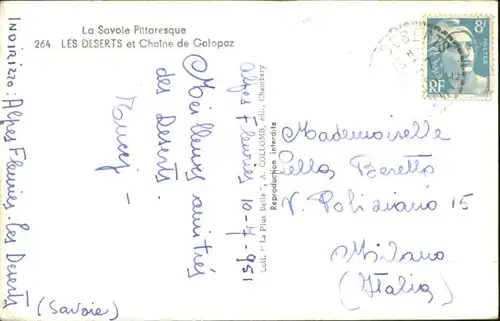 La Savoie Pittoresque
264 LES DESERTS et Chaîne de Galopaz
INDIRIZZO: Alpes Fleuries les Deserts
(Savoie)
Alpes Fleuries 10-7-951
Meilleures amitiés
des Deserts.
Coll. "La Plus Belle", A. COLLOMB, édit., Chambéry
Reproduction interdite
8F
POSTES
RF
Mademoiselle
Lella Beretta
V. Poliziano 15
Milano
(Italia)